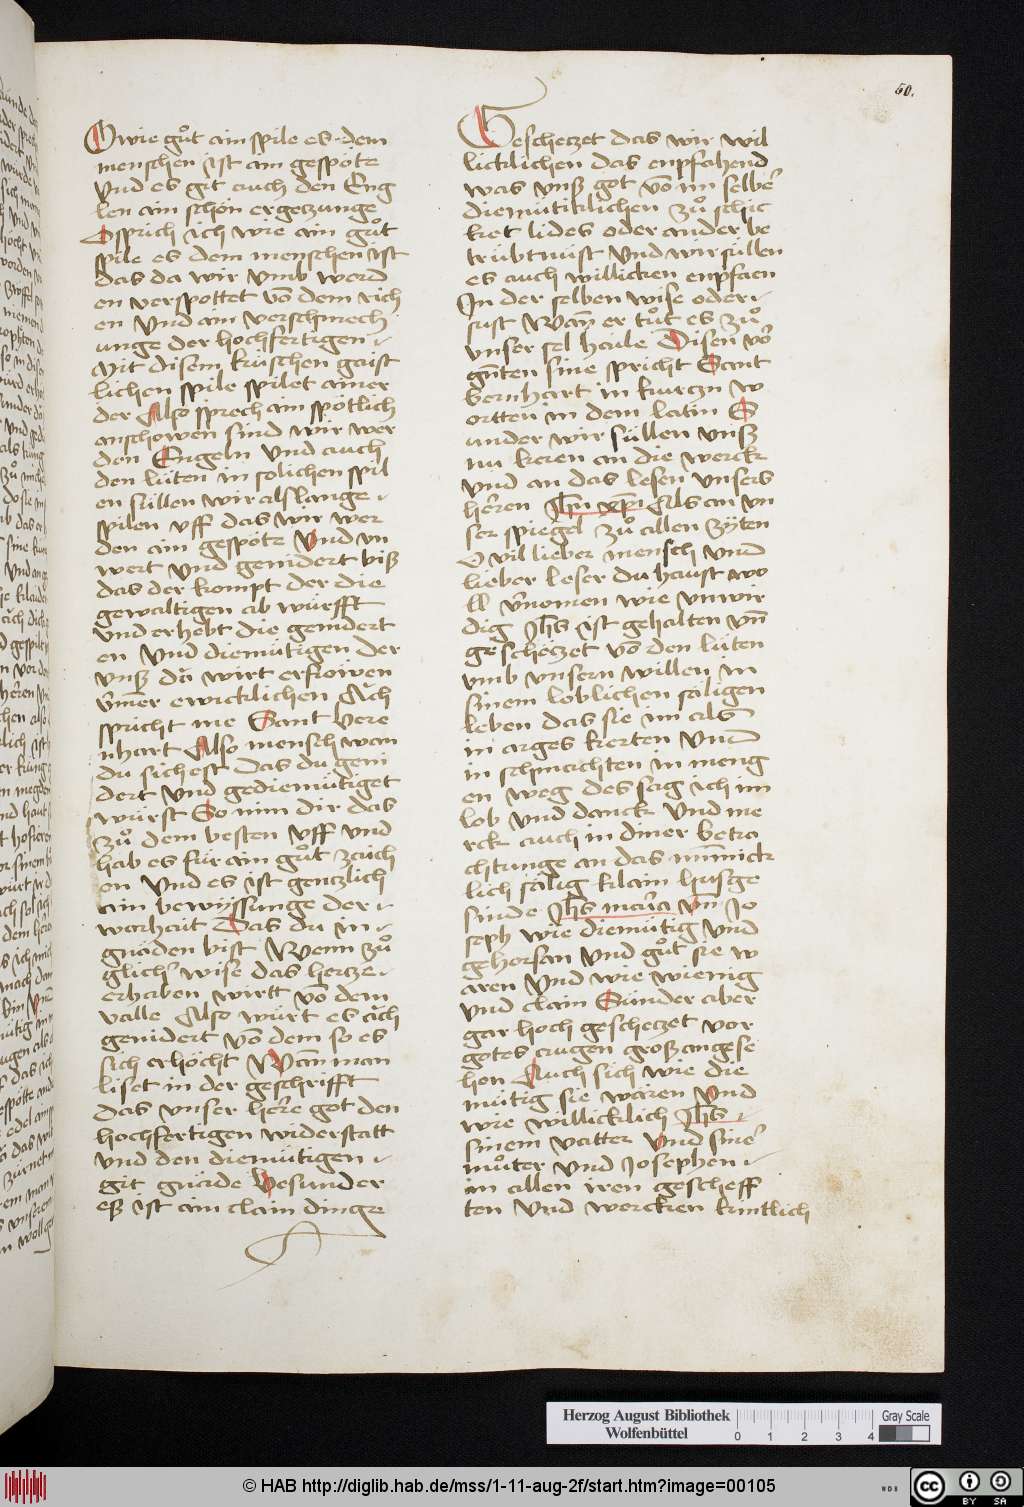 50.
O wie gůt ain spile es dem
menschen ist ain gespötz
Vnd es git auch den Eng
len ain schön ergetzunge
Ich sprich ich wie ain gůt
spile es dem menschen ist
das da wir vmb werd
en verspottet vō dem rich
en Vnd ain verschmech
unge der hochfertigen
Mit disem küschen gaist
lichen spile spilet ainer
der Also sprech ain spötlich
anschowen sind wir wer
den Engeln Vnd auch
den lüten in solichen spil
en süllen wir als lange
spilen vff das wir wer
den ain gespötz Vnd vn
wert Vnd genidert biß
das der kompt der die
gewaltigen ab würfft
vnd erhebt die genidert
en Vnd diemütigen der
vnß da wirt erfröwen
ewicklichen Ăch
spricht me Sant Bere
nhart Also mensch wan
du sichest Das du geni
dert Vnd gediemütiget
würst So nim dir das
zů dem besten vff Vnd
hab es für ain gůt zaich
en Vnd es ist gentzlich
ain bewyssunge der
warhait Das du in
gnäden bist Wenn zů
glich' wise das hertze
erhaben wirtt vō dem
valle Also würt es ăch
genidert vō dem so es
sich erhöcht Wañ man
liset in der geschrifft
das vnser heŕe got den
hochfertigen widerstatt
vnd den diemütigen
git gnäde Besunder
eß ist ain clain dinge
Geschetzet das wir wil
licklichen das enpfahend
was vnß got vō im selbe'
diemütiklichen zů schic
ket lides oder ander be
trübtnüst Vnd wir süllen
es auch willicken enpfaen
In der selben wise oder
sust Wañ er tůt es zů
vnser sel haile Disen vō'
gn̄ten sine spricht Sant
bernhart in kurczn w
ortten in dem latin S
under wir süllen vnß
nu keren an die werck
Vnd an das lesen vnsers
heŕen Jh̄u xp̄i Als an vn
ser spiegel zů allen zÿten
O vil lieber mensch vnd
lieber leser du haust wo
ll v'nomen wie vnwir
dig Jh̄s ist gehalten vn̄
geschetzet vō den lüten
vmb vnsern willen in
sinem loblichen säligen
leben das sie im als
in arges kerten Vnd
in schmachten in meng
en weg des sag ich im
lob vnd danck Vnd me
rck auch in diner betra
chtunge an das
lich sälig klain husge
sinde Jh̄s maŕia vn̄ Jo
seph wie diemütig Vnd
gehorsan Vnd gůt sie w
aren Vnd wie wienig
vnd clain Sünder aber
gar hoch geschetzet vor
gotes augen groß angese
hen Auch sich wie die
mütig sie wären Vnd
wie willicklich Jh̄s
sinem vatter Vnd sine'
můter vnd Josephen
in allen iren gescheff
ten Vnd wercken kintlich
Herzog August Bibliothek
Wolfenbüttel
0 1 2 3 4
Gray Scale
© HAB http://diglib.hab.de/mss/1-11-aug-2f/start.htm?image=00105
WDB
cc BY SA